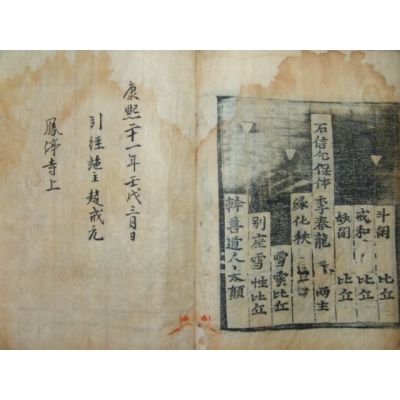 斗閑 比丘
戒和 比丘
妙閑 比丘
石信乞保体 李春龍 兩主
緣化秩
雪雲比丘
別座雪性比丘
幹善道人太顛
康熙二十一年壬戌三月日
引經施主趙戒元
鳳停寺上